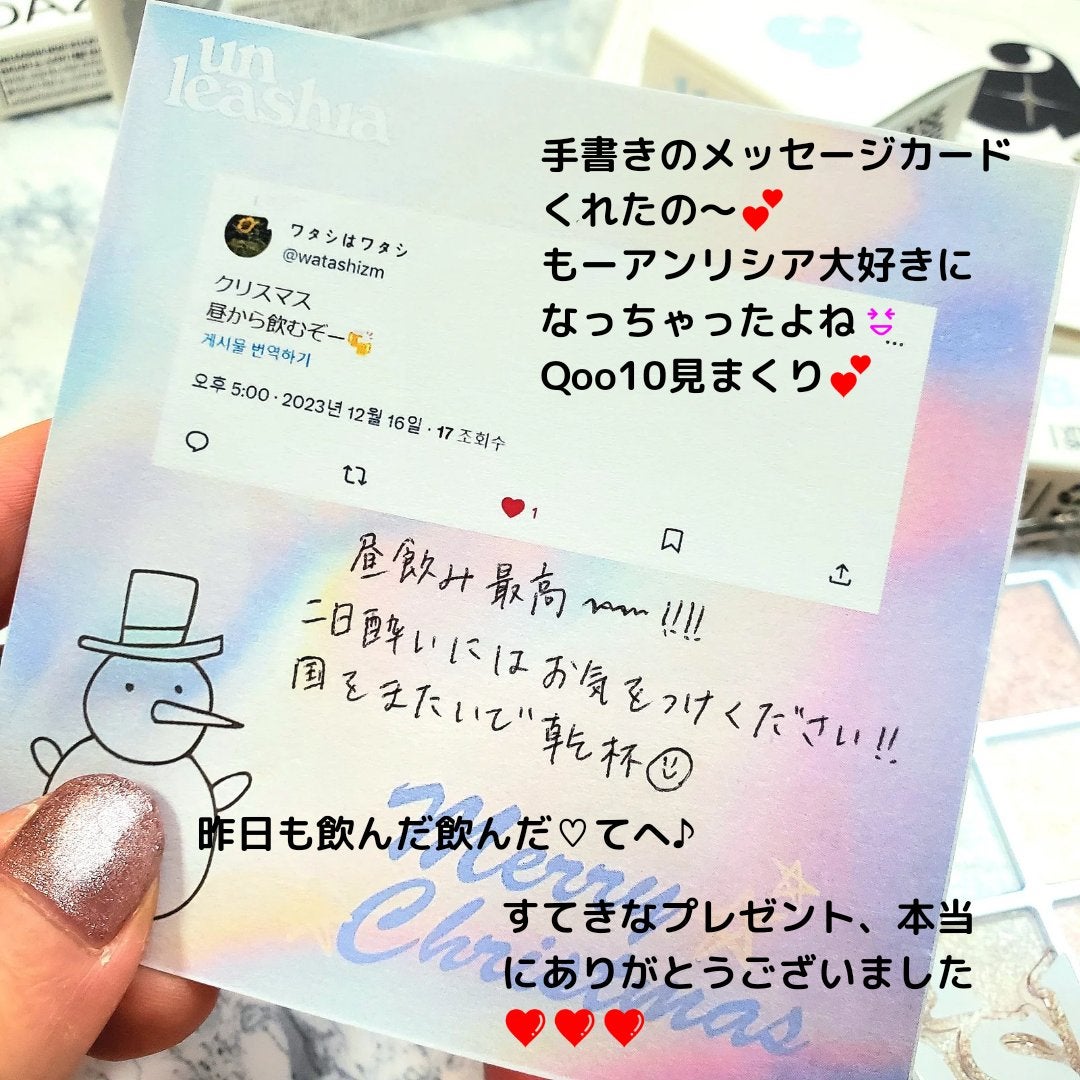 un
leashia
手書きのメッセージカード
くれたの〜💕
もーアンリシア大好きに
なっちゃったよね
Qoo10見まくり💕
ワタシはワタシ
@watashizm
クリスマス
昼から飲むぞー🍻
게시물 번역하기
오후 5:00 · 2023년 12월 16일 · 17 조회수
1
昼飲み最高〜〜!!!!
二日酔いにはお気をつけください!!
国をまたいで乾杯
昨日も飲んだ飲んだ♡てへ♪
Merry
Christmas
すてきなプレゼント、本当
にありがとうございました
❤❤❤